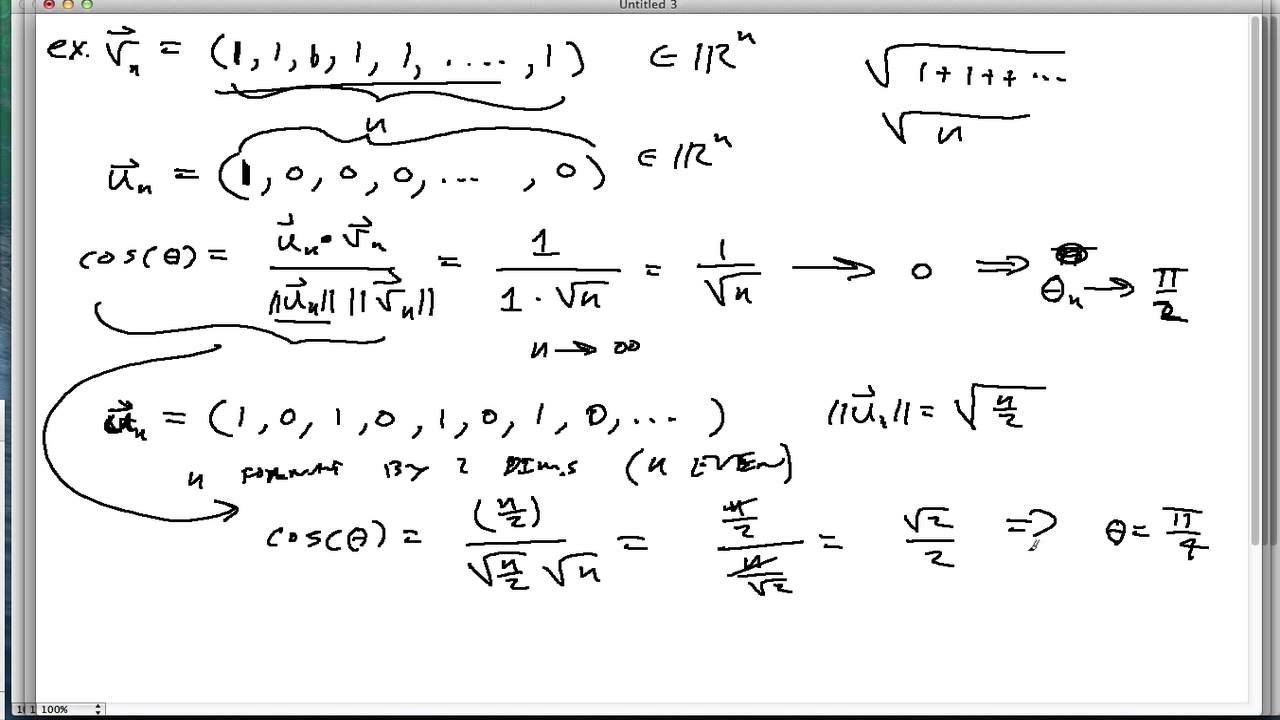 Untitled 3
ex. v⃗ₙ = (1, 1, 1, 1, 1, ...., 1) ∈ ℝⁿ
√(1 + 1 + + ...
n
√n
u⃗ₙ = (1, 0, 0, 0, ... , 0) ∈ ℝⁿ
cos(θ) = (u⃗ₙ • v⃗ₙ) / (||u⃗ₙ|| ||v⃗ₙ||) = 1 / (1 · √n) = 1/√n → 0 ⇒ θₙ → π/2
n → ∞
u⃗ₙ = (1, 0, 1, 0, 1, 0, 1, 0, ... ) ||u⃗ₙ|| = √(n/2)
n By 2 Dims (n EVEN)
cos(θ) = (n/2) / (√(n/2) √n) = (n/2) / (n/√2) = √2/2 =? θ = π/4
100%